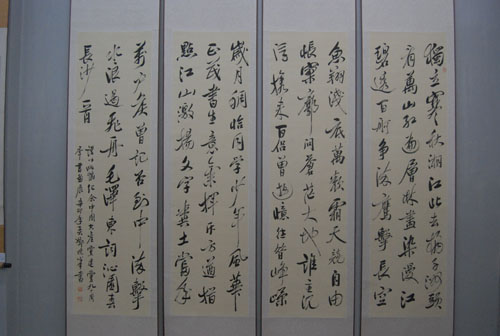 獨立寒秋湘江北去橘子洲頭
看萬山紅遍層林盡染漫江
碧透百舸爭流鷹擊長空
魚翔淺底萬類霜天競自由
悵寥廓問蒼茫大地誰主沉
浮攜來百侶曾遊憶往昔崢嶸
歲月稠恰同學少年風華
正茂書生意氣揮斥方遒指
點江山激揚文字糞土當年
萬戶侯曾記否到中流擊
水浪遏飛舟毛澤東詞沁園春
長沙 一首
紀念中國共產黨建黨九十周
年